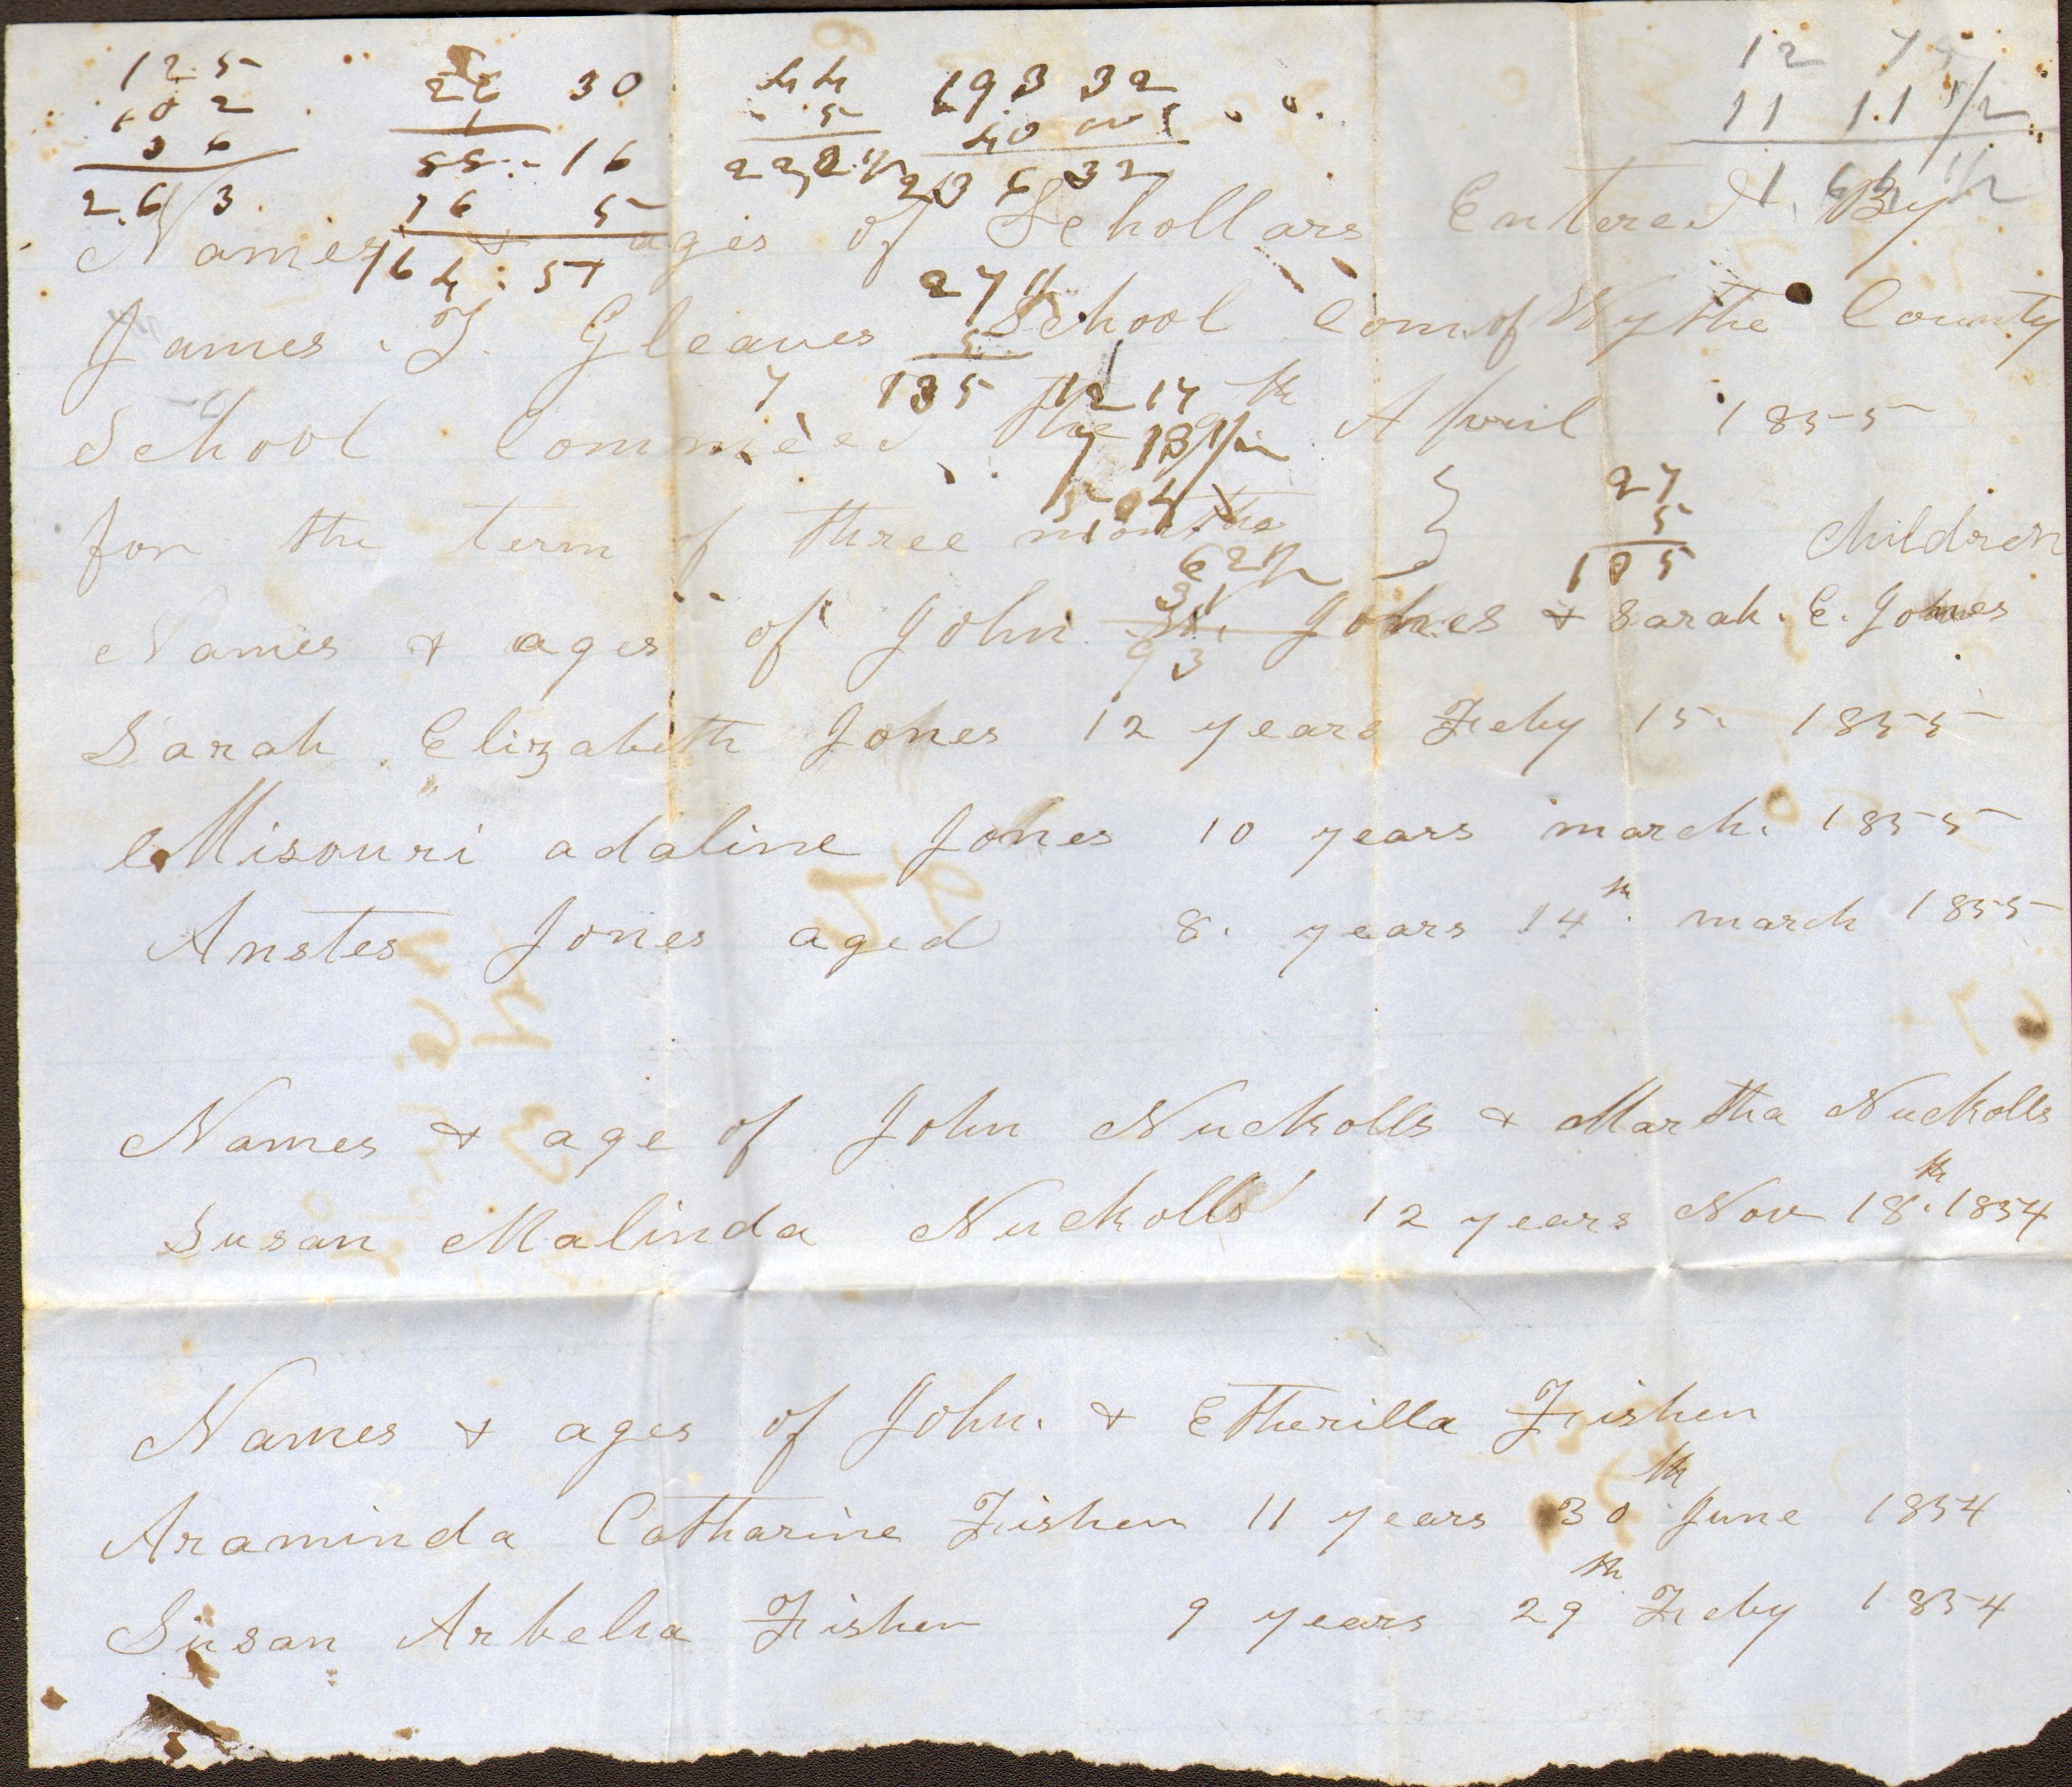 125
102
36
263
30
55 - 16
16 5
164 : 51
44
5
193 32
40
236 32
12
11 11 1/2
1 66 1/2
Names & ages of Schollars Entered By
James . T. Gleaves School Com. of Wythe County
27
5
135
School Commeced the April 1855
12 17
7 18 1/2
for the term of three months } Children
27
5
62 1/2
31
93
Names & ages of John Jones & Sarah. E. Jones
Sarah Elizabeth Jones 12 years Feby 15. 1855
Misouri adaline Jones 10 years march. 1855
Anstes Jones aged 8. years 14th march 1855
Names & age of John Nuckolls & Martha Nuckolls
Susan Malinda Nuckolls 12 years Nov 18th. 1854
Names & ages of John. & Etherilla Fisher
Araminda Catharine Fisher 11 years 30th June 1854
Susan Arbelia Fisher 9 years 29th Feby 1854